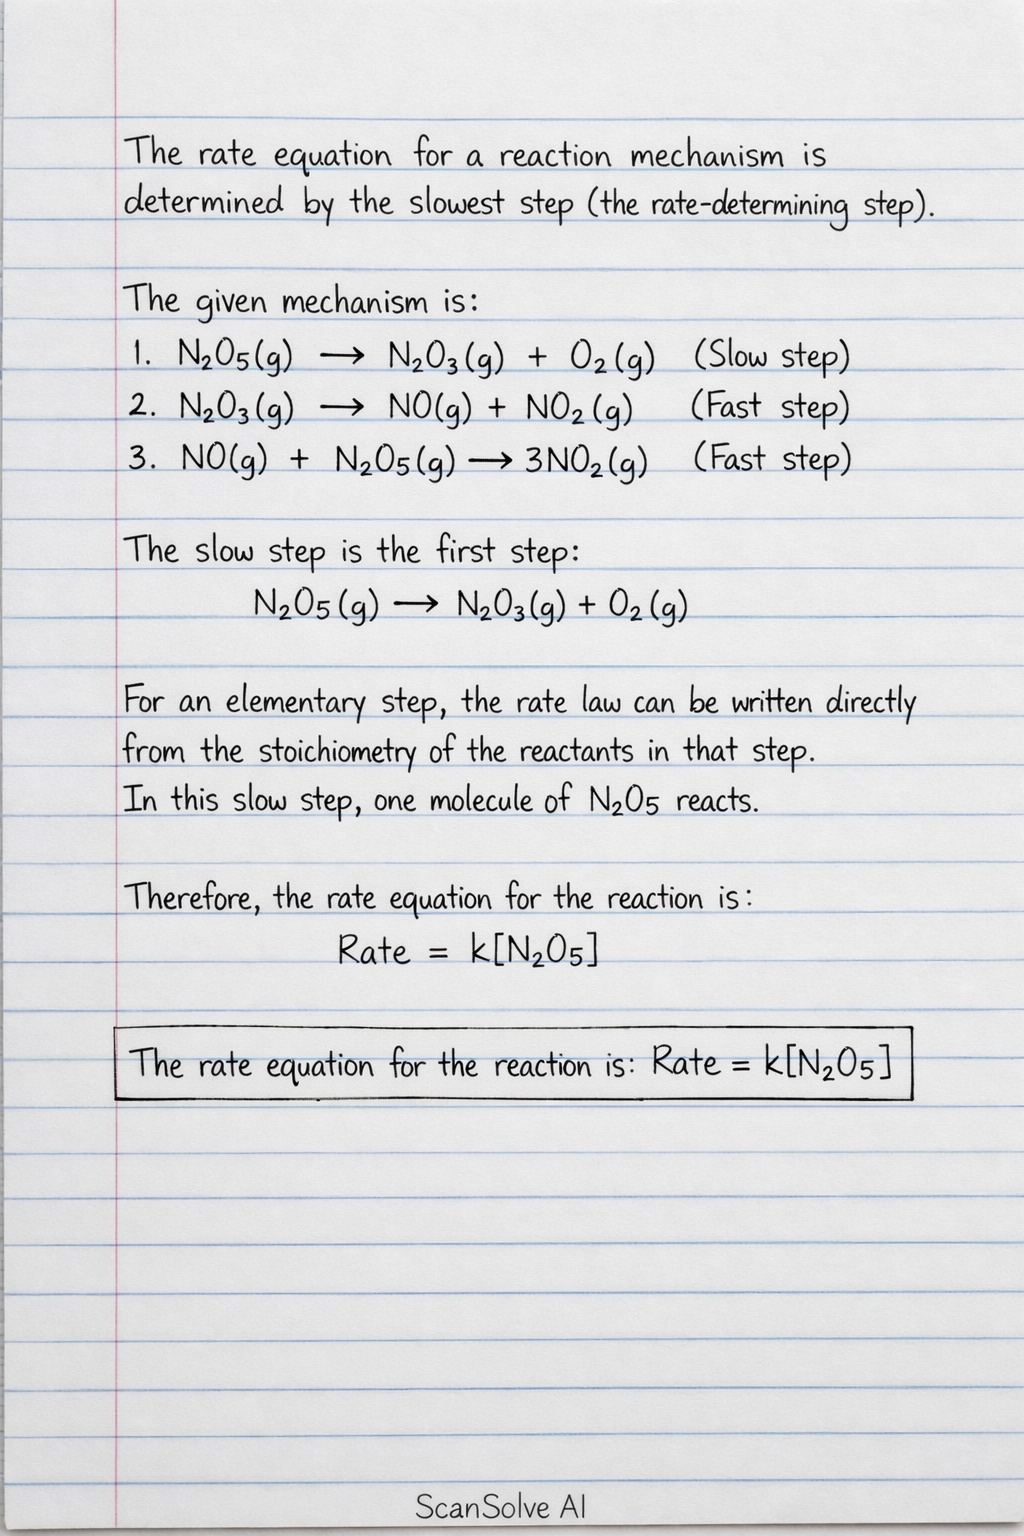 The rate equation for a reaction mechanism is
determined by the slowest step (the rate-determining step).
The given mechanism is:
1. N₂O₅(g) → N₂O₃(g) + O₂(g) (Slow step)
2. N₂O₃(g) → NO(g) + NO₂(g) (Fast step)
3. NO(g) + N₂O₅(g) → 3NO₂(g) (Fast step)
The slow step is the first step:
N₂O₅(g) → N₂O₃(g) + O₂(g)
For an elementary step, the rate law can be written directly
from the stoichiometry of the reactants in that step.
In this slow step, one molecule of N₂O₅ reacts.
Therefore, the rate equation for the reaction is:
Rate = k[N₂O₅]
The rate equation for the reaction is: Rate = k[N₂O₅]
ScanSolve AI